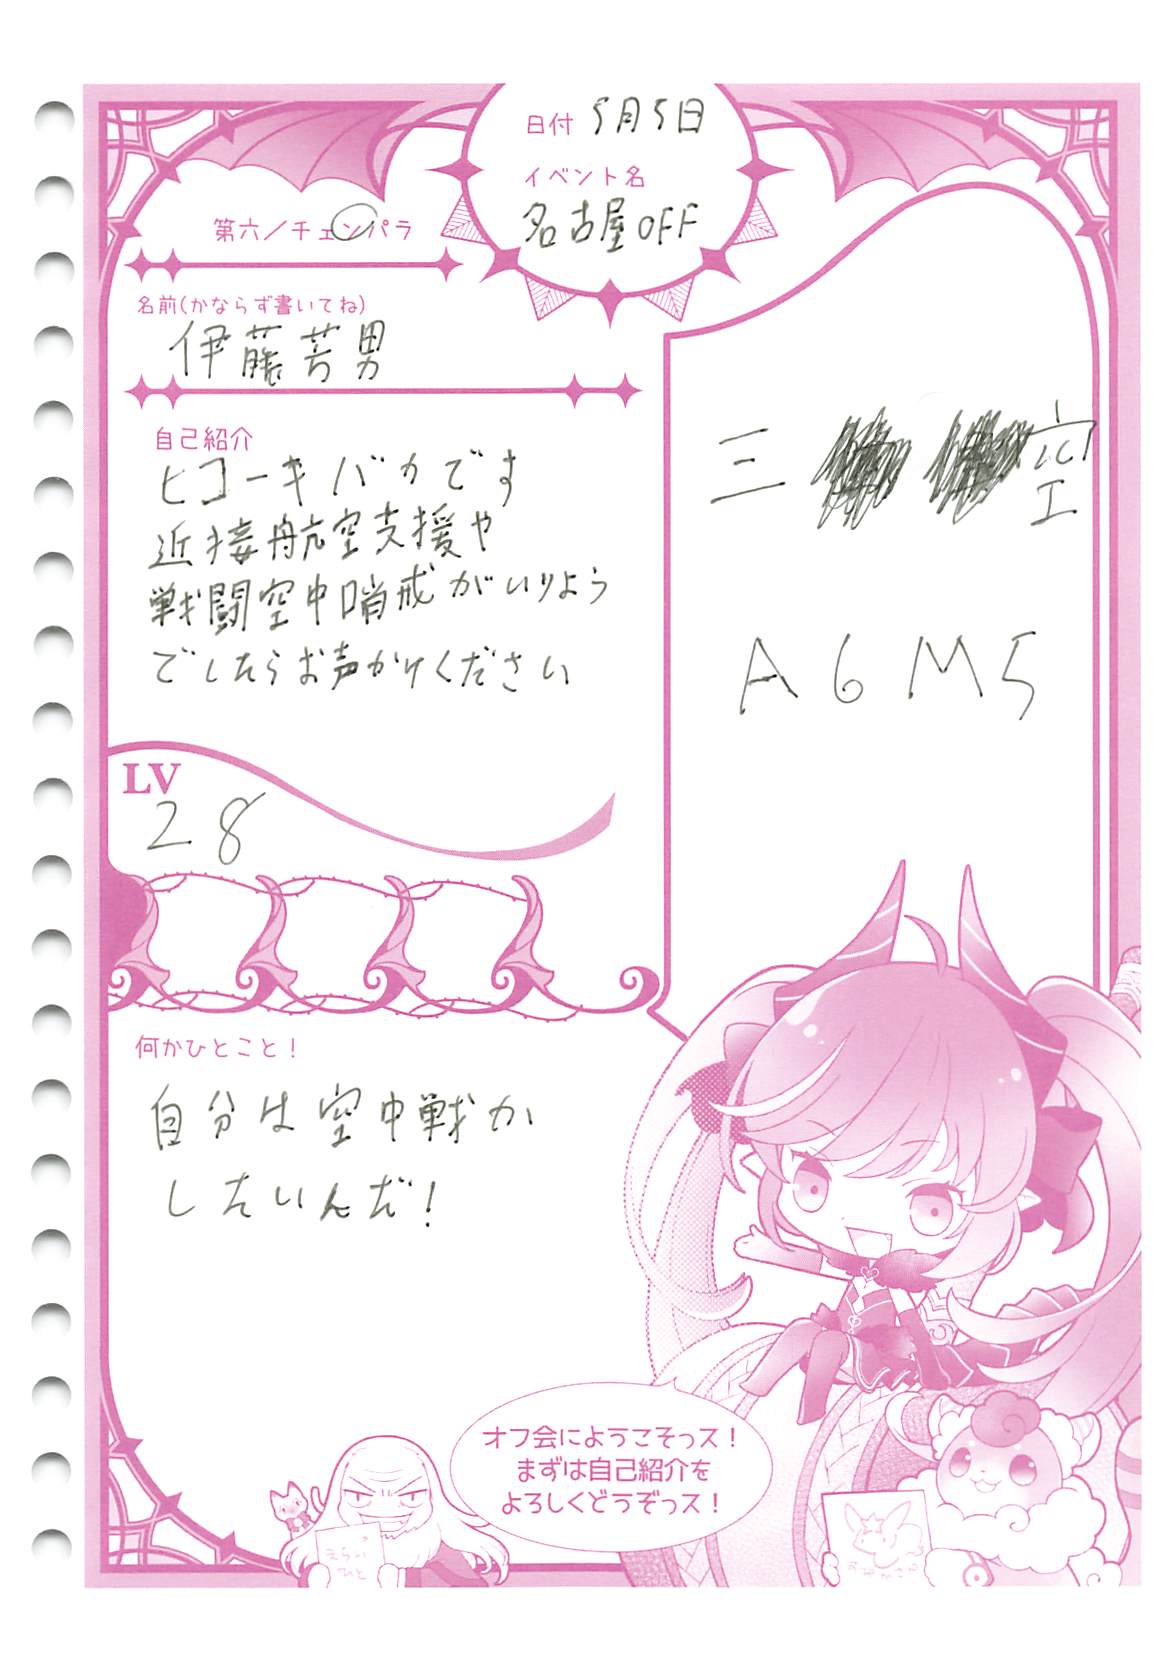 日付 5月5日
イベント名
名古屋OFF
第六/チェンパラ
名前(かならず書いてね)
伊藤芳男
自己紹介
ヒコーキバカです
近接航空支援や
戦闘空中哨戒がいりよう
でしたらお声かけください
三 空
A6M5
LV
28
何かひとこと!
自分は空中戦が
したいんだ!
オフ会にようこそっス!
まずは自己紹介を
よろしくどうぞっス!
えらい
ひと